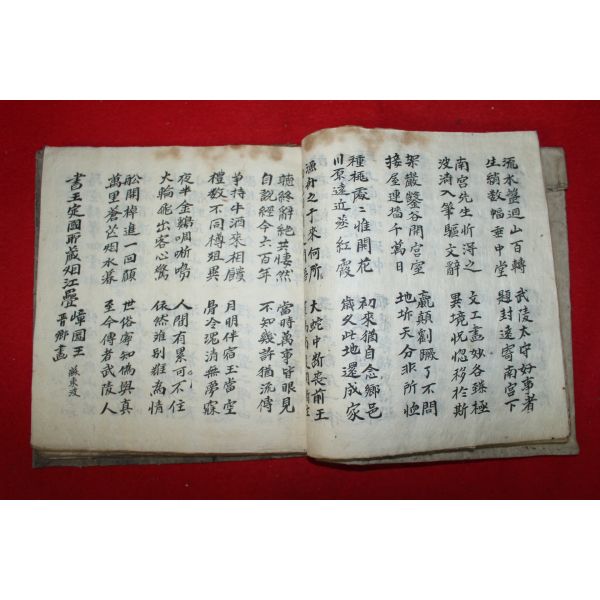 流水盤廻山百轉
生綃數幅垂中堂
武陵太守好事者
題封遠寄南宮下
南宮先生忻得之
波濤入筆驅文辭
文工畵妙各臻極
異境恍惚移於斯
架巖鑿谷開宮室
接屋連墻千萬日
嬴顚劉蹶了不問
地坼天分非所恤
種桃處〻惟開花
川原遠近蒸紅霞
初來猶自念鄉邑
歲久此地還成家
漁舟之子來何所
大蛇中斷喪前王
聽終辭絶共悽然
自說經今六百年
當時萬事皆眼見
不知幾許猶流傳
爭持牛酒來相饋
禮數不同樽俎異
月明伴宿玉堂空
骨冷魂淸無夢寐
夜半金鷄啁哳鳴
火輪飛出客心驚
人間有累可不住
依然離別難爲情
船開棹進一回顧
萬里蒼茫烟水暮
世俗寧知僞與眞
至今傳者武陵人
書王定國所藏烟江疊
嶂圖王
晋卿畵
蘇東坡